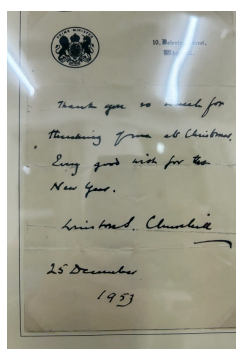 PRIME MINISTER
10, Downing Street,
Whitehall.
Thank you so much for
thinking of me at Christmas.
Every good wish for the
New Year.
Winston S. Churchill
25 December
1953